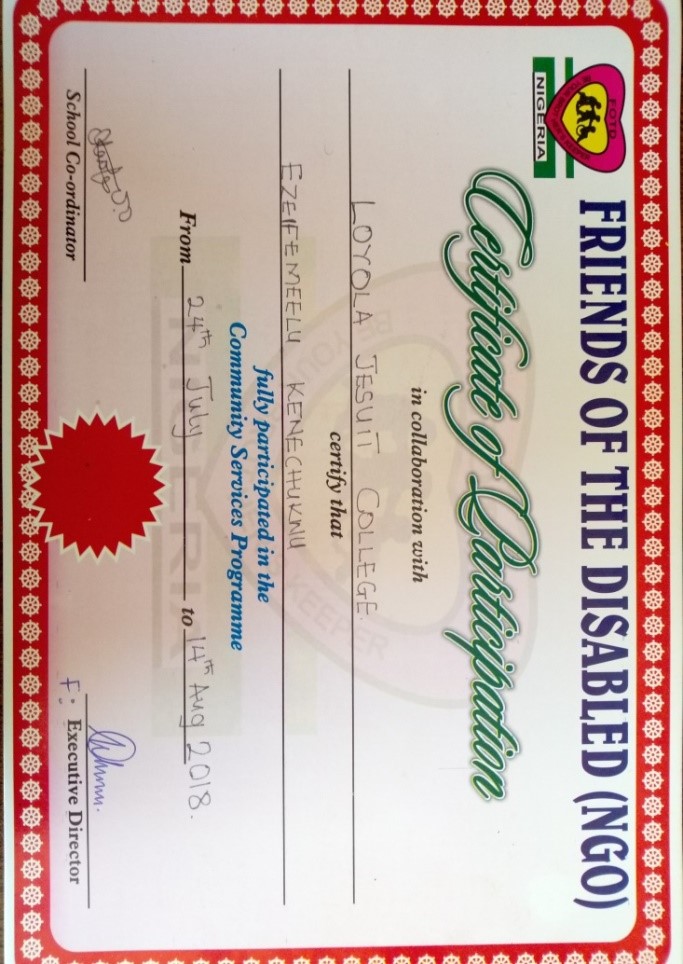 FOTD
NIGERIA
FRIENDS OF THE DISABLED (NGO)
Certificate of Participation
in collaboration with
LOYOLA JESUIT COLLEGE.
certify that
EZEIFEMEELU KENECHUKNU
fully participated in the
Community Services Programme
From 24th July to 14th Aug 2018.
School Co-ordinator
F: Executive Director
BE YOUR KEEPER
NIGERIA